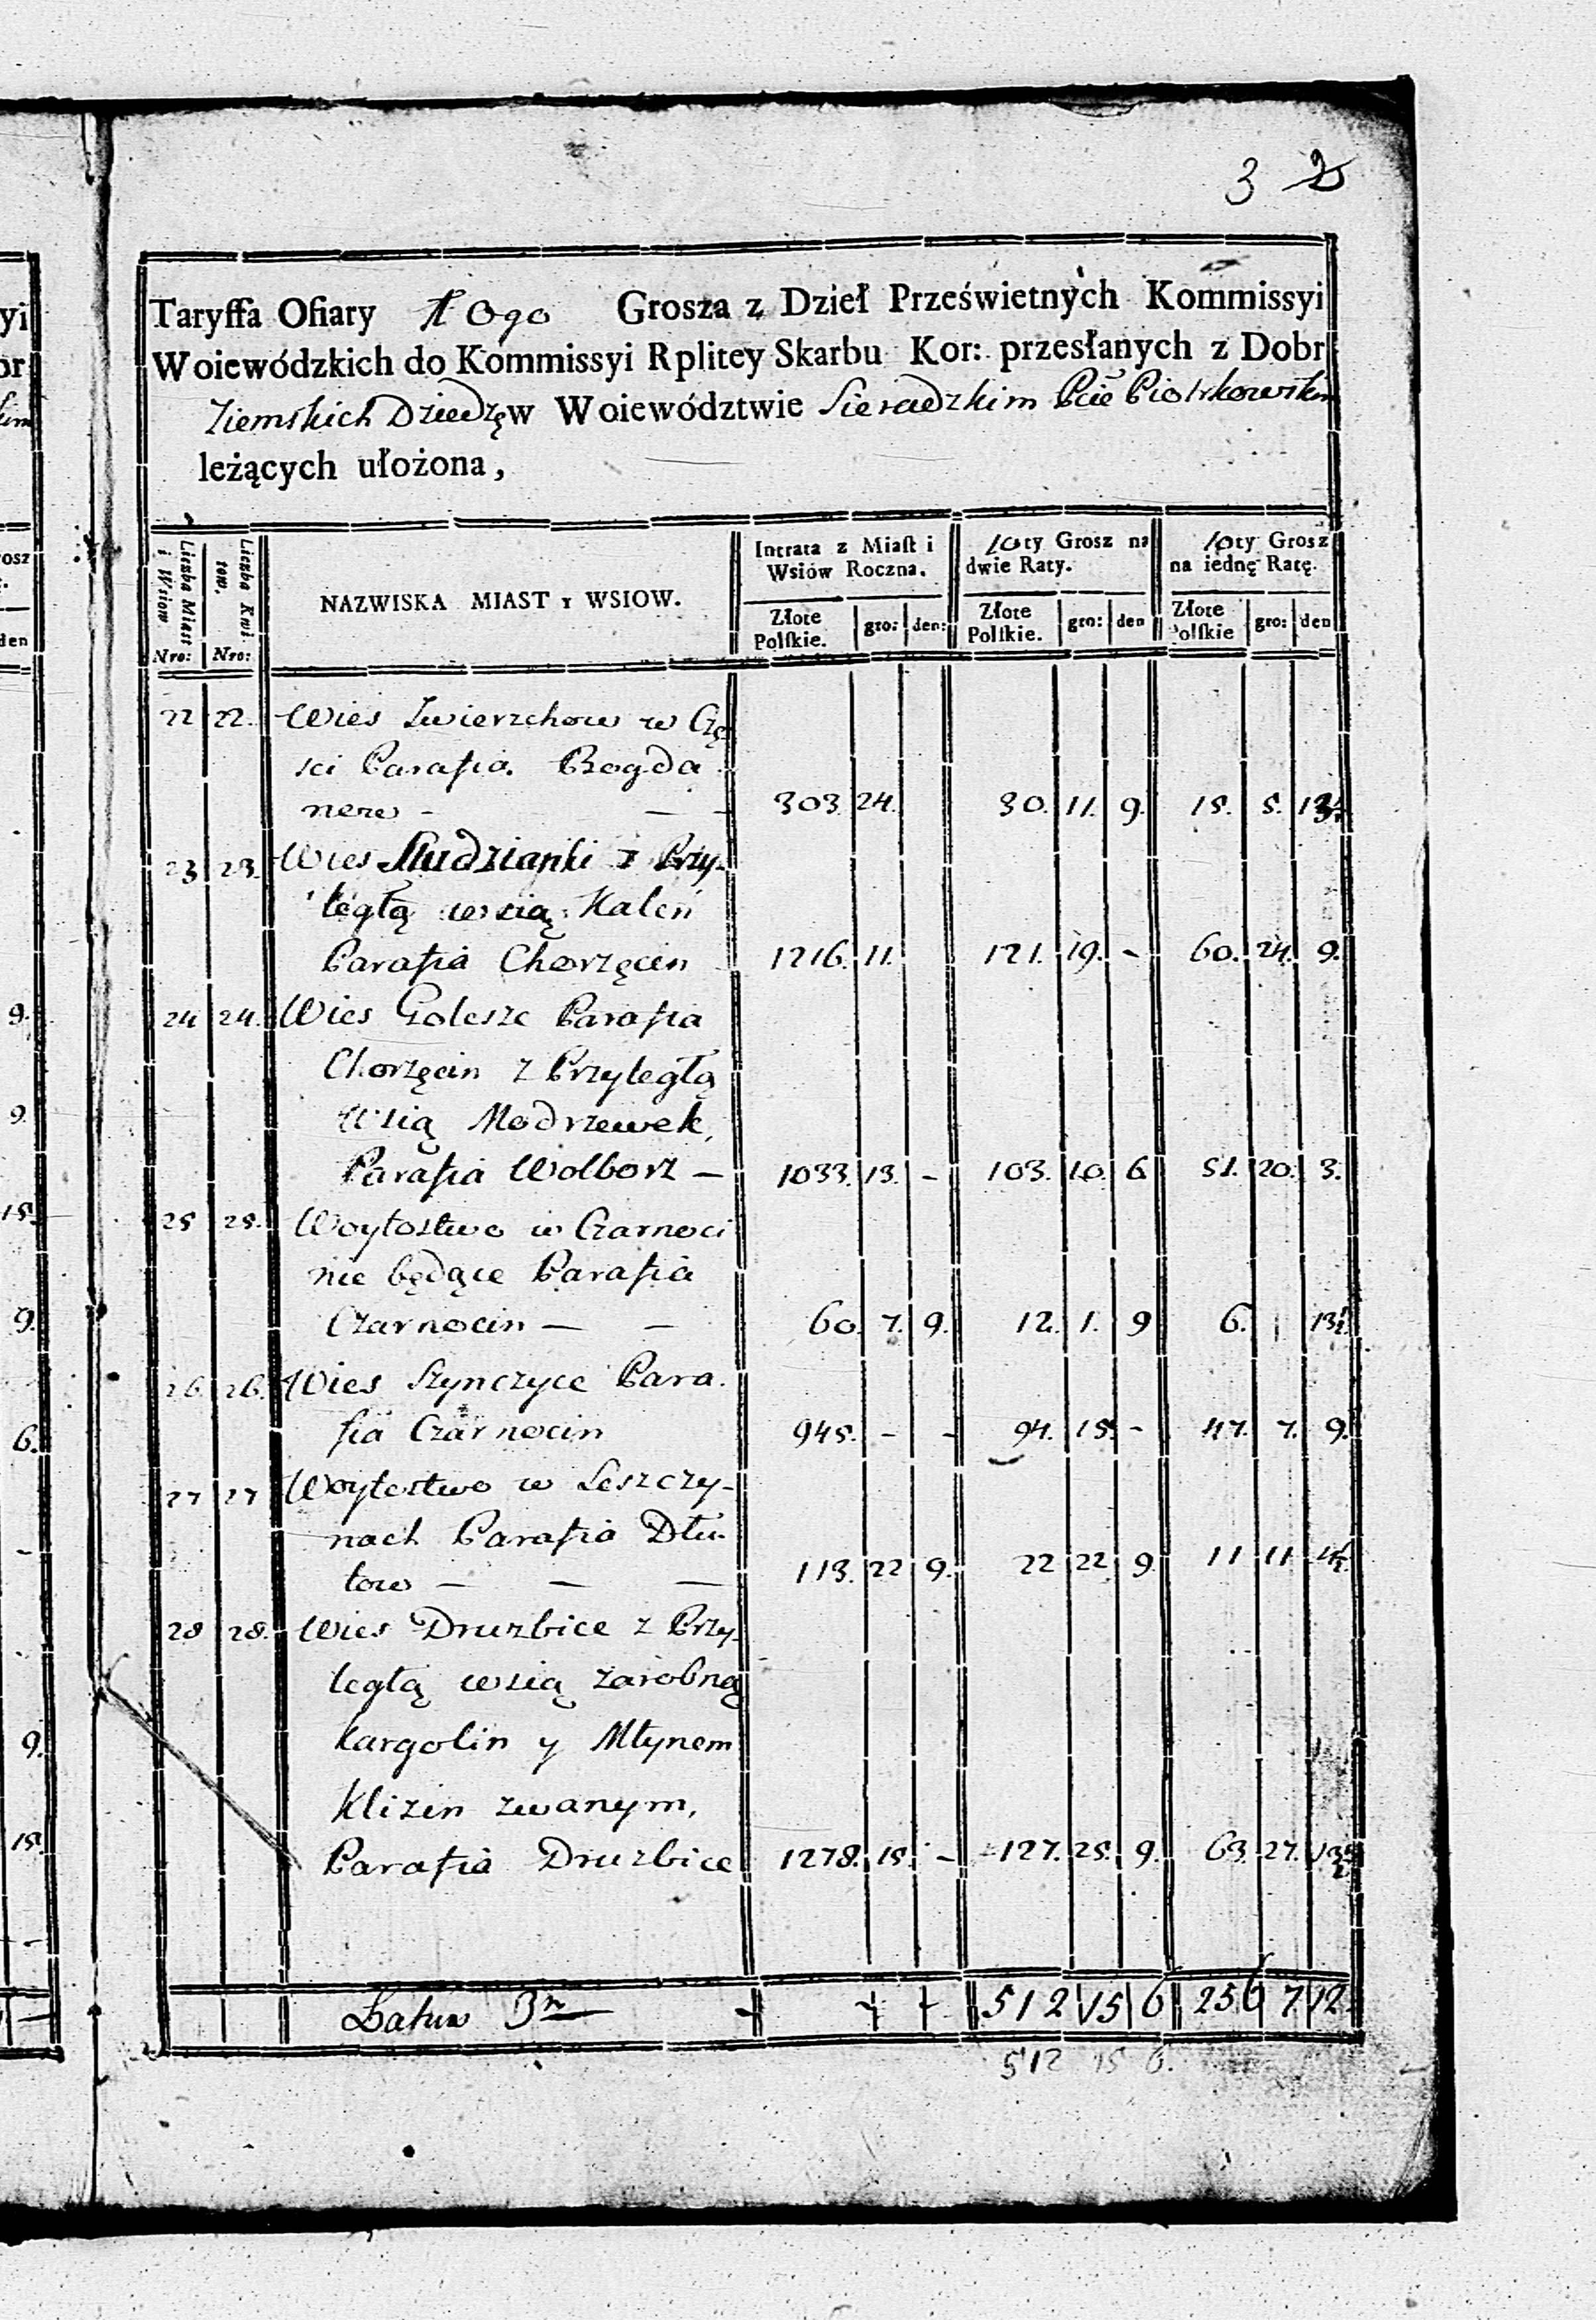 3 2
Taryffa Ofiary 10go Grosza z Dzieł Prześwietnych Kommissyi
Woiewódzkich do Kommissyi Rplitey Skarbu Kor: przesłanych z Dobr
Ziemskich Dziedz: w Woiewództwie Sieradzkim Pcie Piotrkowskim
leżących ułożona,
Liczba Miast i Wsiow Nro: | Liczba Kwitow. Nro: | NAZWISKA MIAST Y WSIOW. | Intrata z Miast i Wsiów Roczna. Złote Polskie. gro: den: | 10ty Grosz na dwie Raty. Złote Polskie. gro: den | 10ty Grosz na iednę Ratę. Złote Polskie gro: den
22 22. Wies Zwierzchow w Czę
sci Parafia. Bogda
now - — — 303 24. 30. 11. 9. 15. 5. 13½
23 23. Wies Studzianki z Przy-
ległą wsią Kaleń
Parafia Chorzęcin 1216. 11. 121. 19. - 60. 24. 9.
24 24. Wies Golesze Parafia
Chorzęcin z Przyległą
Wsią Modrzewek,
Parafia Wolborz — 1033. 13. - 103. 10. 6 51. 20. 3.
25 25. Woytostwo w Czarnoci
nie będące Parafia
Czarnocin — — 60. 7. 9. 12. 1. 9 6. 13½
26 26. Wies Szynczyce Para.
fia Czarnocin 945. - - 94. 15. - 47. 7. 9.
27 27 Woytostwo w Leszczy-
nach Parafia Dłu-
tow — — — 113. 22 9. 22 22. 9. 11 11 4½
28 28. Wies Druzbice z Przy-
ległą wsią zarobną
Kargolin y Młynem
Klizin zwanym,
Parafia Druzbice 1278. 15. - 127. 25. 9. 63. 27. 13½
Latus 3m 512 15 6 256 7 12
512 15 6.
9.
9.
15.
9.
6.
9.
15.